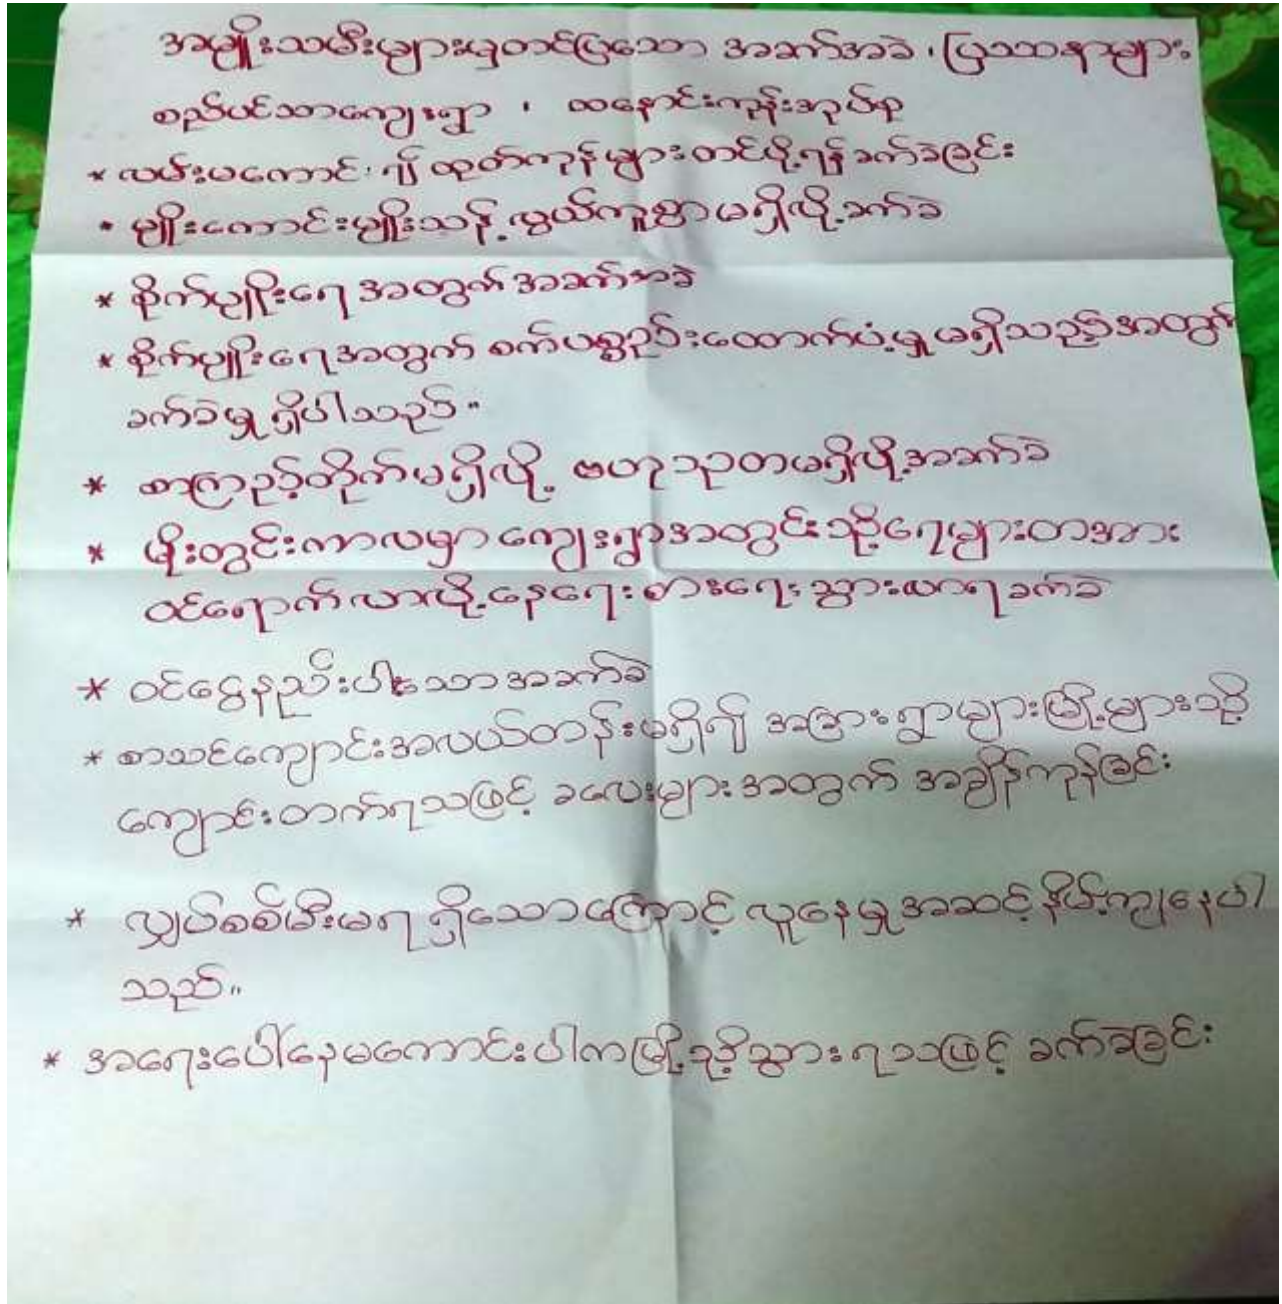 အမျိုးသမီးများမှတင်ပြသော အခက်အခဲ၊ ပြဿနာများ
စည်ပင်သာကျေးရွာ ၊ ထနောင်းကုန်းအုပ်စု
* လမ်းမကောင်း၍ ထုတ်ကုန်များတင်ပို့ရန် ခက်ခဲခြင်း
* မျိုးကောင်းမျိုးသန့် လွယ်ကူစွာမရှိလို့ခက်ခဲ
* စိုက်ပျိုးရေအတွက်အခက်အခဲ
* စိုက်ပျိုးရေအတွက် စက်ပစ္စည်းထောက်ပံ့မှုမရှိသည့်အတွက်
ခက်ခဲမှုရှိပါသည်။
* စာကြည့်တိုက်မရှိလို့ ဗဟုသုတမရှိလို့အခက်ခဲ
* မိုးတွင်းကာလမှာကျေးရွာအတွင်းသို့ရေများတအား
ဝင်ရောက်လာလို့နေရေးစားရေးသွားလာရခက်ခဲ
* ဝင်ငွေနည်းပါးသောအခက်ခဲ
* စာသင်ကျောင်းအလယ်တန်းမရှိ၍ အခြားရွာများမြို့များသို့
ကျောင်းတက်ရသဖြင့် ခလေးများအတွက် အချိန်ကုန်ခြင်း
* လျှပ်စစ်မီးမရရှိသောကြောင့် လူနေမှုအဆင့်နိမ့်ကျနေပါ
သည်။
* အရေးပေါ်နေမကောင်းပါကမြို့သို့သွားရသဖြင့် ခက်ခဲခြင်း